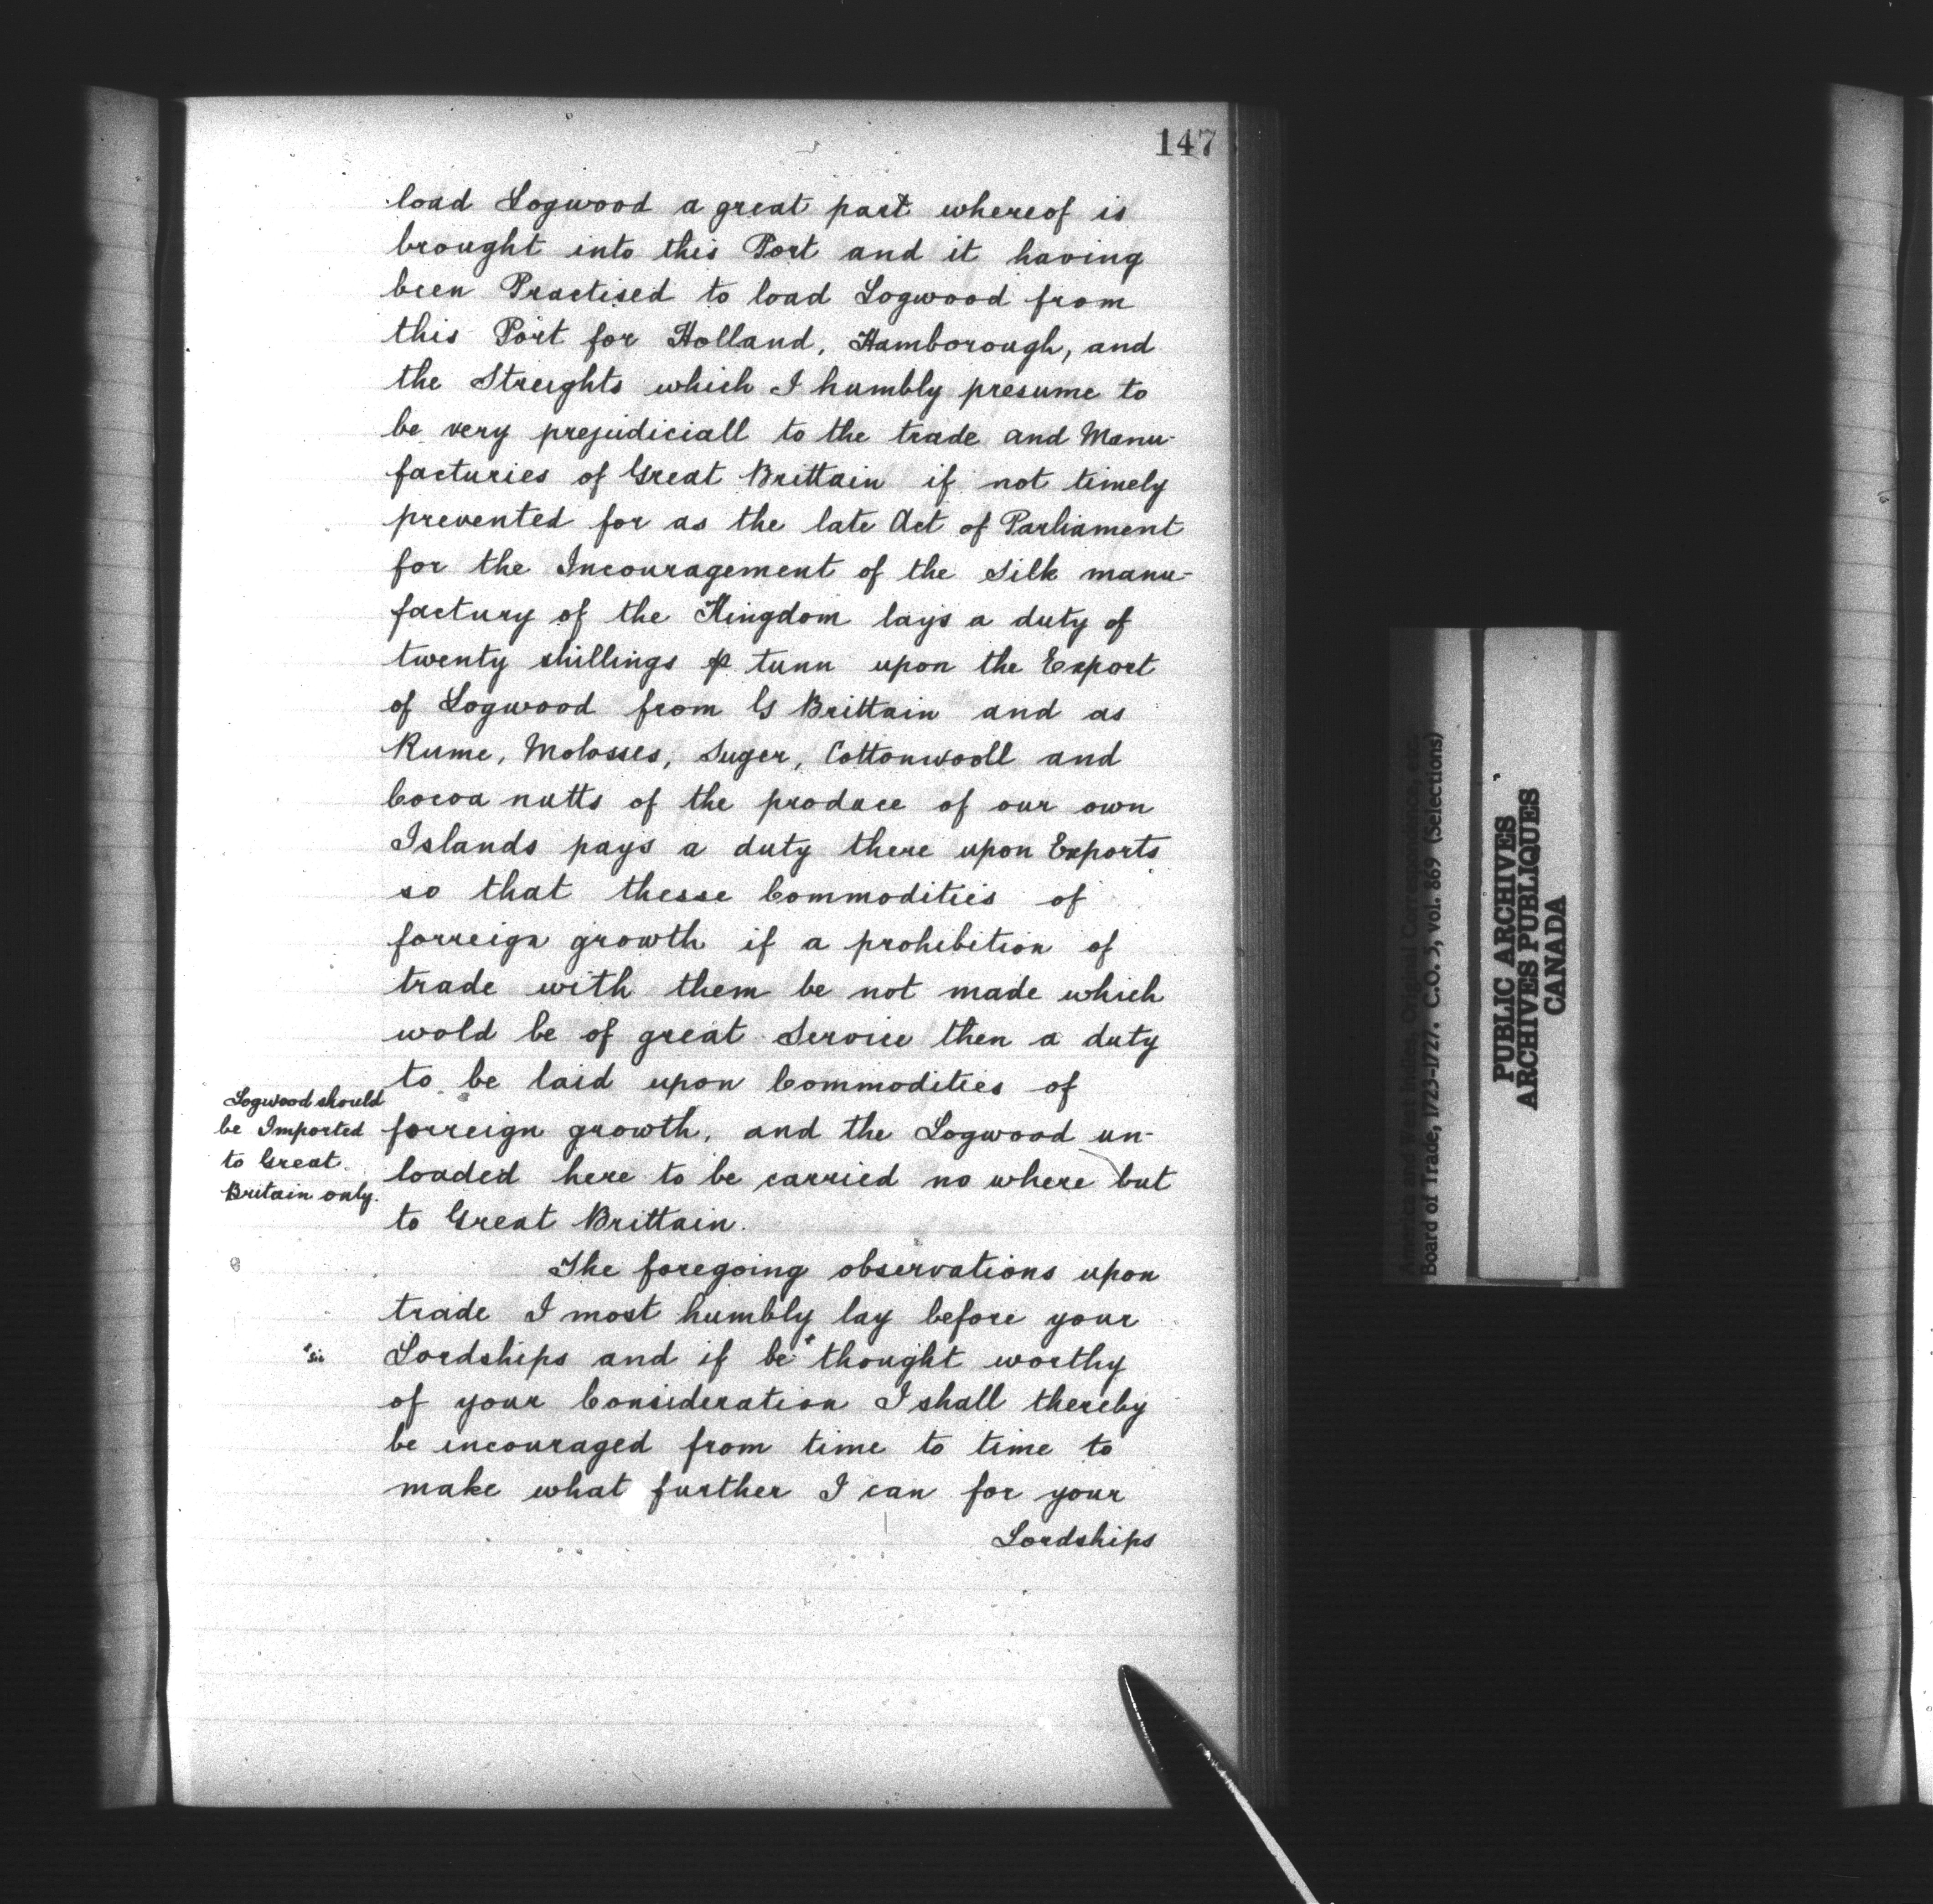 147
load Logwood a great part whereof is
brought into this Port and it having
been Practised to load Logwood from
this Port for Holland, Hamborough, and
the Streights which I humbly presume to
be very prejudiciall to the trade and Manu-
facturies of Great Brittain if not timely
prevented for as the late Act of Parliament
for the Incouragement of the Silk manu-
factury of the Kingdom lays a duty of
twenty shillings ⅌ tunn upon the Export
of Logwood from G Brittain and as
Rume, Molosses, Suger, Cottonwooll and
Cocoa nutts of the produce of our own
Islands pays a duty there upon Exports
so that thesse Commodities of
forreign growth if a prohibition of
trade with them be not made which
wold be of great Service then a duty
to be laid upon Commodities of
forreign growth, and the Logwood un-
loaded here to be carried no where but
to Great Brittain.
Logwood should
be Imported
to Great
Britain only.
The foregoing observations upon
trade I most humbly lay before your
Lordships and if be* thought worthy
*sic
of your Consideration I shall thereby
be encouraged from time to time to
make what further I can for your
Lordships
America and West Indies, Original Correspondence, etc.
Board of Trade, 1723-1727. C.O. 5, vol. 869 (Selections)
PUBLIC ARCHIVES
ARCHIVES PUBLIQUES
CANADA